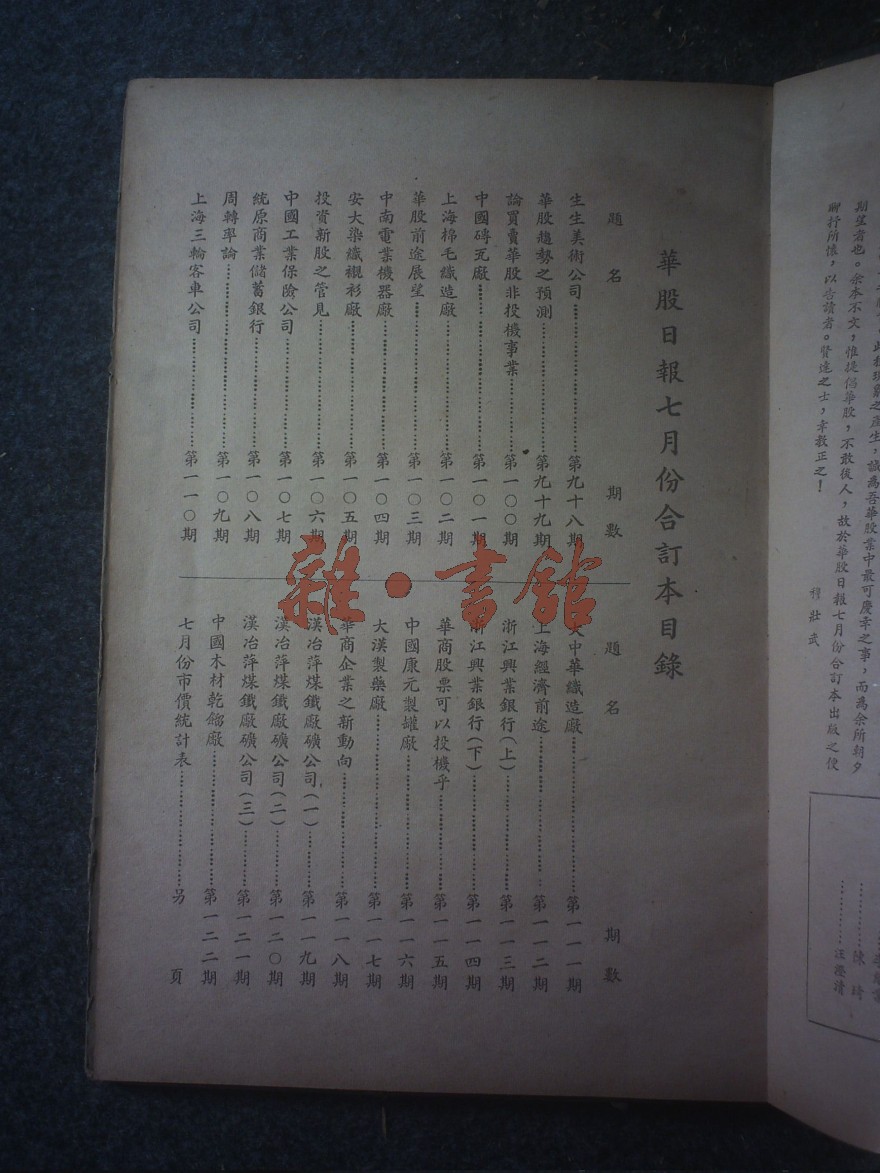 之產生，誠為吾華股業中最可慶幸之事，而為余所朝夕
期望者也。余本不文，惟提倡華股，不敢後人，故於華股日報七月份合訂本出版之便
聊抒所懷，以告讀者。賢達之士，幸教正之！
陳 琦
汪澄清
華股日報七月份合訂本目錄
題名 期數
生生美術公司………第九十八期
華股趨勢之預測………第九十九期
論買賣華股非投機事業………第一〇〇期
中國磚瓦廠………第一〇一期
上海棉毛織造廠………第一〇二期
華股前途展望………第一〇三期
中南電業機器廠………第一〇四期
安大染織襯衫廠………第一〇五期
投資新股之管見………第一〇六期
中國工業保險公司………第一〇七期
統原商業儲蓄銀行………第一〇八期
周轉率論………第一〇九期
上海三輪客車公司………第一一〇期
題名 期數
大中華織造廠………第一一一期
上海經濟前途………第一一二期
浙江興業銀行(上)………第一一三期
浙江興業銀行(下)………第一一四期
華商股票可以投機乎………第一一五期
中國康元製罐廠………第一一六期
大漢製藥廠………第一一七期
華商企業之新動向………第一一八期
漢冶萍煤鐵廠礦公司(一)………第一一九期
漢冶萍煤鐵廠礦公司(二)………第一二〇期
漢冶萍煤鐵廠礦公司(三)………第一二一期
中國木材乾餾廠………第一二二期
七月份市價統計表………另頁
雜·書館